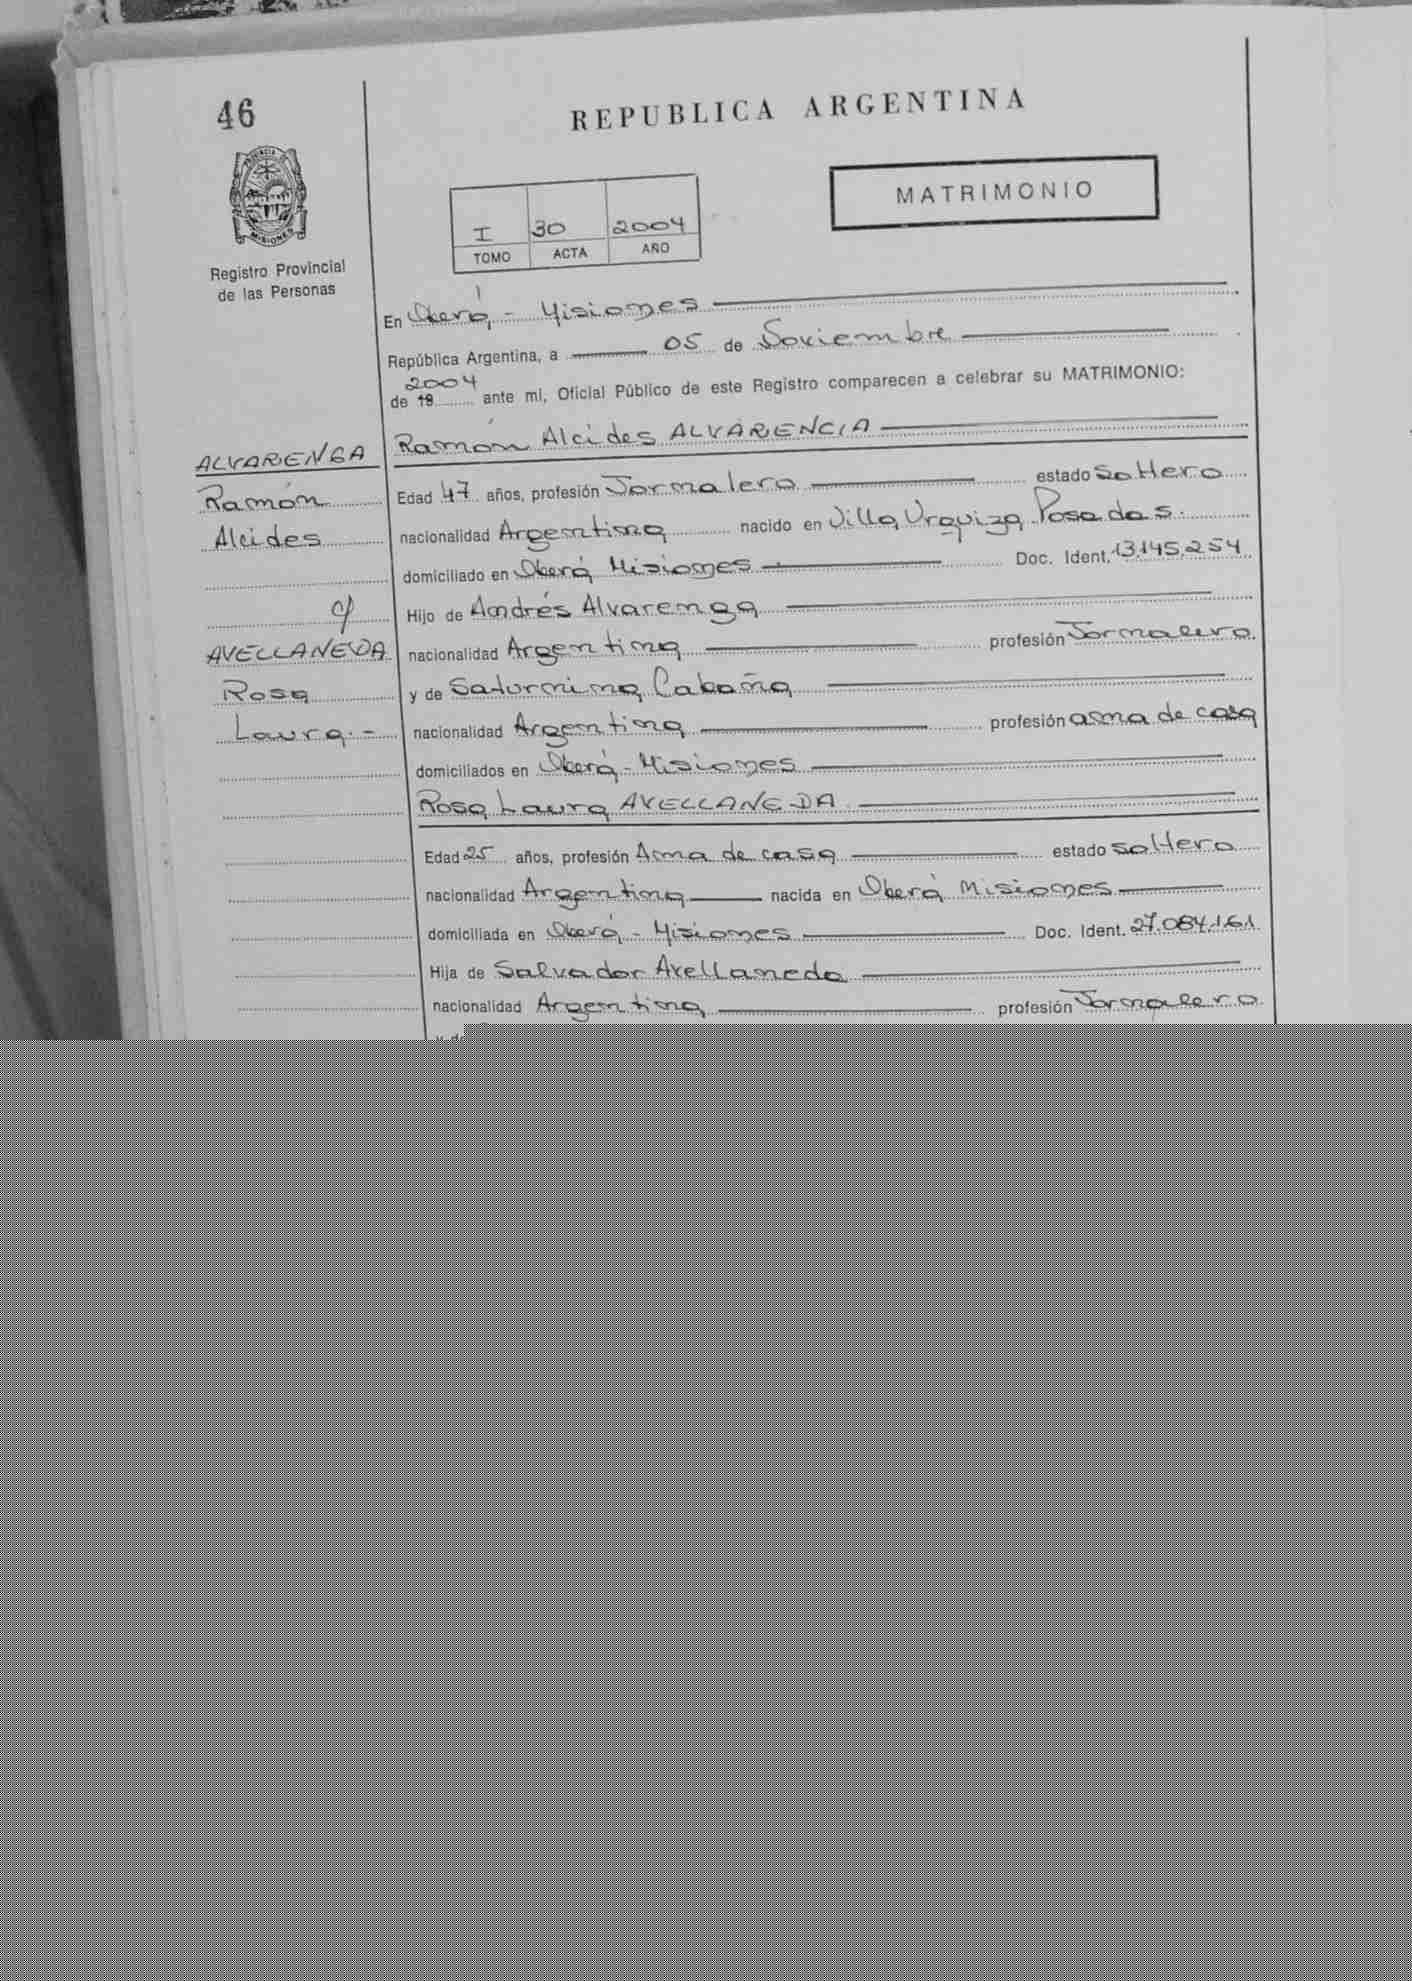 46
REPUBLICA ARGENTINA
PROVINCIA DE
MISIONES
Registro Provincial
de las Personas
I 30 2004
TOMO ACTA AÑO
MATRIMONIO
En Oberá - Misiones
República Argentina, a 05 de Noviembre
2004
de 19 ante mi, Oficial Público de este Registro comparecen a celebrar su MATRIMONIO:
ALVARENGA
Ramón
Alcides
c/
AVELLANEDA
Rosa
Laura.-
Ramón Alcides ALVARENGA
Edad 47 años, profesión Jornalero estado Soltero
nacionalidad Argentina nacido en Villa Urquiza Posadas.
domiciliado en Oberá Misiones Doc. Ident. 13.145.254
Hijo de Andrés Alvarenga
nacionalidad Argentina profesión Jornalero.
y de Saturnina Cabaña
nacionalidad Argentina profesión ama de casa
domiciliados en Oberá - Misiones
Rosa Laura AVELLANEDA.
Edad 25 años, profesión Ama de casa estado soltero
nacionalidad Argentina nacida en Oberá Misiones
domiciliada en Oberá - Misiones Doc. Ident. 27.084.161
Hija de Salvador Avellaneda
nacionalidad Argentina profesión Jornalero